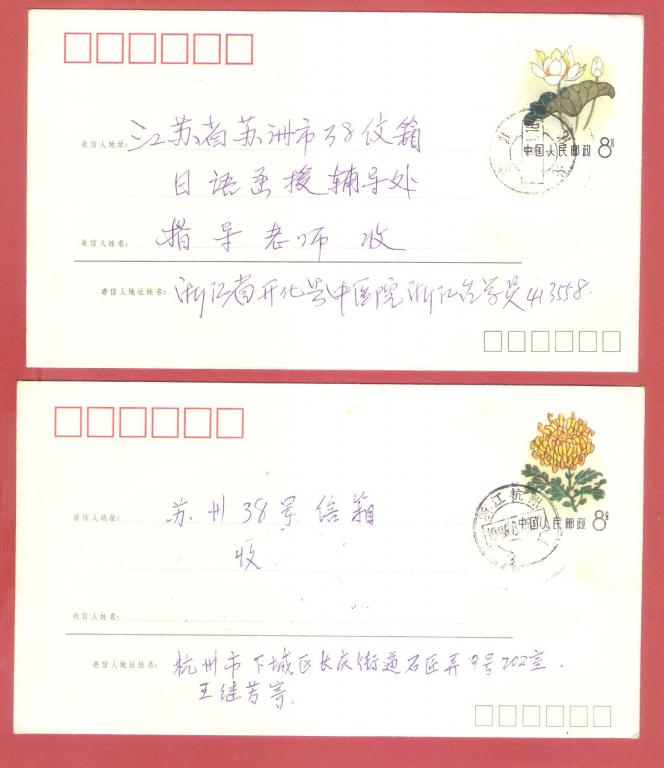 中国人民邮政 8分
收信人地址: 江苏省苏洲市38信箱
日语函授辅导处
收信人姓名: 指导老师 收
寄信人地址姓名: 浙江省开化县中医院 浙江台学员413558.
中国人民邮政 8分
浙江杭州
收信人地址: 苏州38号信箱
收
收信人姓名:
寄信人地址姓名: 杭州市下城区长庆街道石匠弄9号202室.
王继芳寄.